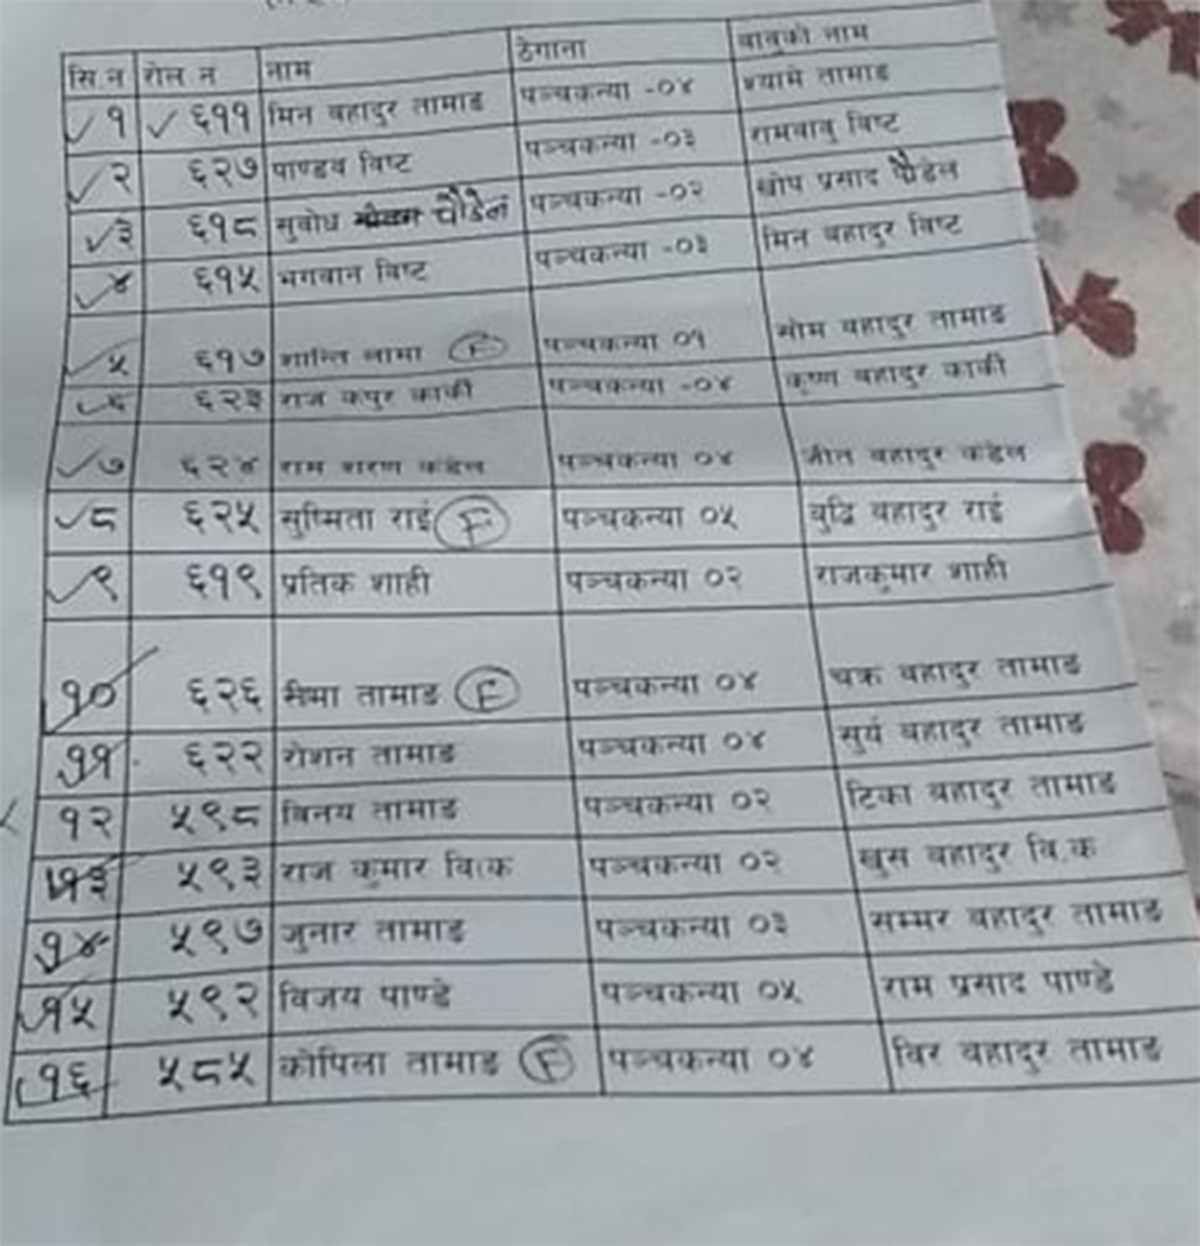 सि.न रोल न नाम ठेगाना बावुको नाम
१ ६११ मिन बहादुर तामाङ पञ्चकन्या -०४ श्यामे तामाङ
२ ६२७ पाण्डव विष्ट पञ्चकन्या -०३ रामबाबु विष्ट
३ ६१८ सुवोध पौडेल पञ्चकन्या -०२ खोप प्रसाद पौडेल
४ ६१५ भगवान विष्ट पञ्चकन्या -०३ मिन बहादुर विष्ट
५ ६१७ शान्ति लामा F पञ्चकन्या ०१ सोम बहादुर तामाङ
६ ६२३ राज कपुर कार्की पञ्चकन्या -०४ कृष्ण बहादुर कार्की
७ ६२४ राम शरण कंडेल पञ्चकन्या ०४ जीत बहादुर कंडेल
८ ६२५ सुष्मिता राई F पञ्चकन्या ०५ वुद्धि बहादुर राई
९ ६१९ प्रतिक शाही पञ्चकन्या ०२ राजकुमार शाही
१० ६२६ सीमा तामाङ F पञ्चकन्या ०४ चक्र बहादुर तामाङ
११ ६२२ रोशन तामाङ पञ्चकन्या ०४ सुर्य बहादुर तामाङ
१२ ५९८ विनय तामाङ पञ्चकन्या ०२ टिका बहादुर तामाङ
१३ ५९३ राज कुमार वि.क पञ्चकन्या ०२ खुस बहादुर वि.क
१४ ५९७ जुनार तामाङ पञ्चकन्या ०३ सम्मर बहादुर तामाङ
१५ ५९२ विजय पाण्डे पञ्चकन्या ०५ राम प्रसाद पाण्डे
१६ ५८५ कोपिला तामाङ F पञ्चकन्या ०४ विर बहादुर तामाङ